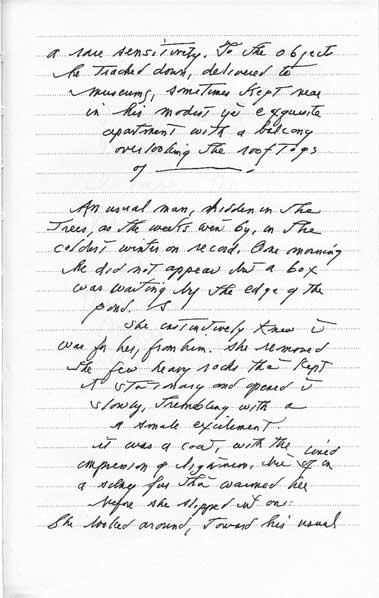 a rare sensitivity. To the objects
he tracked down, delivered to
museums, sometimes kept near
in his modest yet exquisite
apartment with a balcony
overlooking the rooftops
of ________.
An usual man, hidden in the
trees, as the weeks went by, in the
coldest winter on record. One morning
he did not appear but a box
was waiting by the edge of the
pond. S
she instinctively knew it
was for her, from him. She removed
the few heavy rocks that kept
it stationary and opened it
slowly, trembling with a
a small excitement.
it was a coat, with the lined
of in
a silver fur that warmed her
before she slipped it on.
She looked around, toward his usual